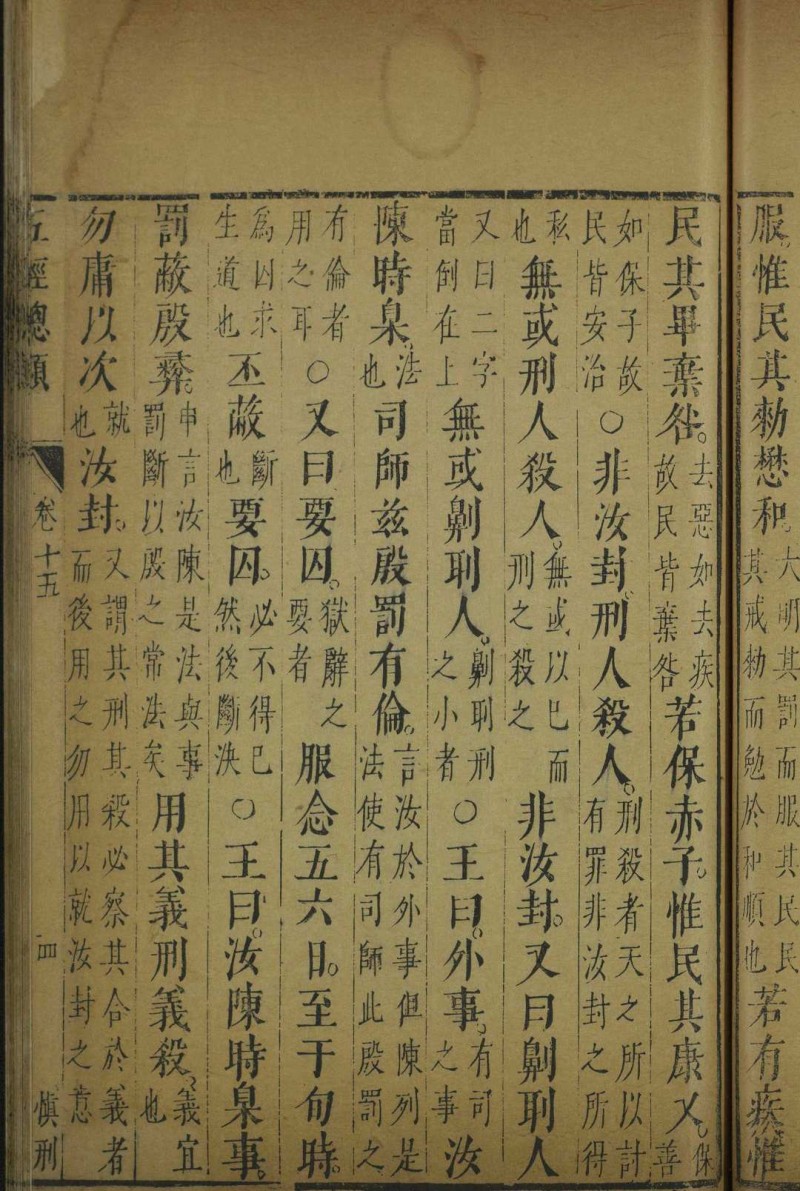 服惟民其勑懋和大明其罰而服其民民其戒勑而勉於和順也若有疾惟
民其畢棄咎。去惡如去疾故民皆棄咎若保赤子。惟民其康乂。保善
如保子故民皆安治○非汝封刑人殺人。刑殺者天之所以討有罪非汝封之所得
私也無或刑人殺人。無或以已而刑之殺之非汝封。又曰劓刵人
又曰二字當倒在上無或劓刵人。劓刵刑之小者○王曰。外事。有司之事汝
陳時臬。法也司師兹殷罰有倫。言汝於外事但陳列是法使有司師此殷罰之
有倫者用之耳○又曰要囚。獄辭之要者服念五六日。至于旬時。
為囚求生道也丕蔽斷也要囚。必不得已然後斷決○王曰。汝陳時臬事。
罰蔽殷彝。申言汝陳是法與事罰斷以殷之常法矣用其義刑義殺。義宜也
勿庸以次就也汝封。又謂其刑其殺必察其合於義者而後用之勿用以就汝封之意
五經總類 卷十五 四 慎刑